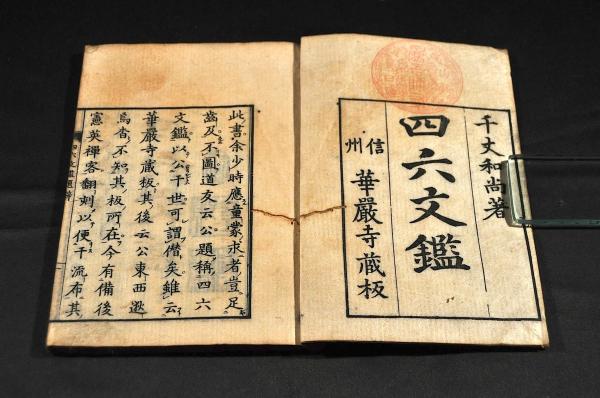 千丈和尚著
四六文鑑
信州 華嚴寺蔵板
此書余少時應童蒙求者豈足
齒及不圖道友云公題稱四六
文鑑以公于世可謂僭矣雖云
華嚴寺蔵板其後云公東西遯
焉省不知其板所在今有備後
憲英禪客翻刻以便于流布其